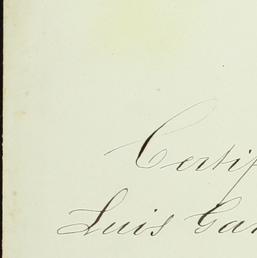 Certif
Luis Gar